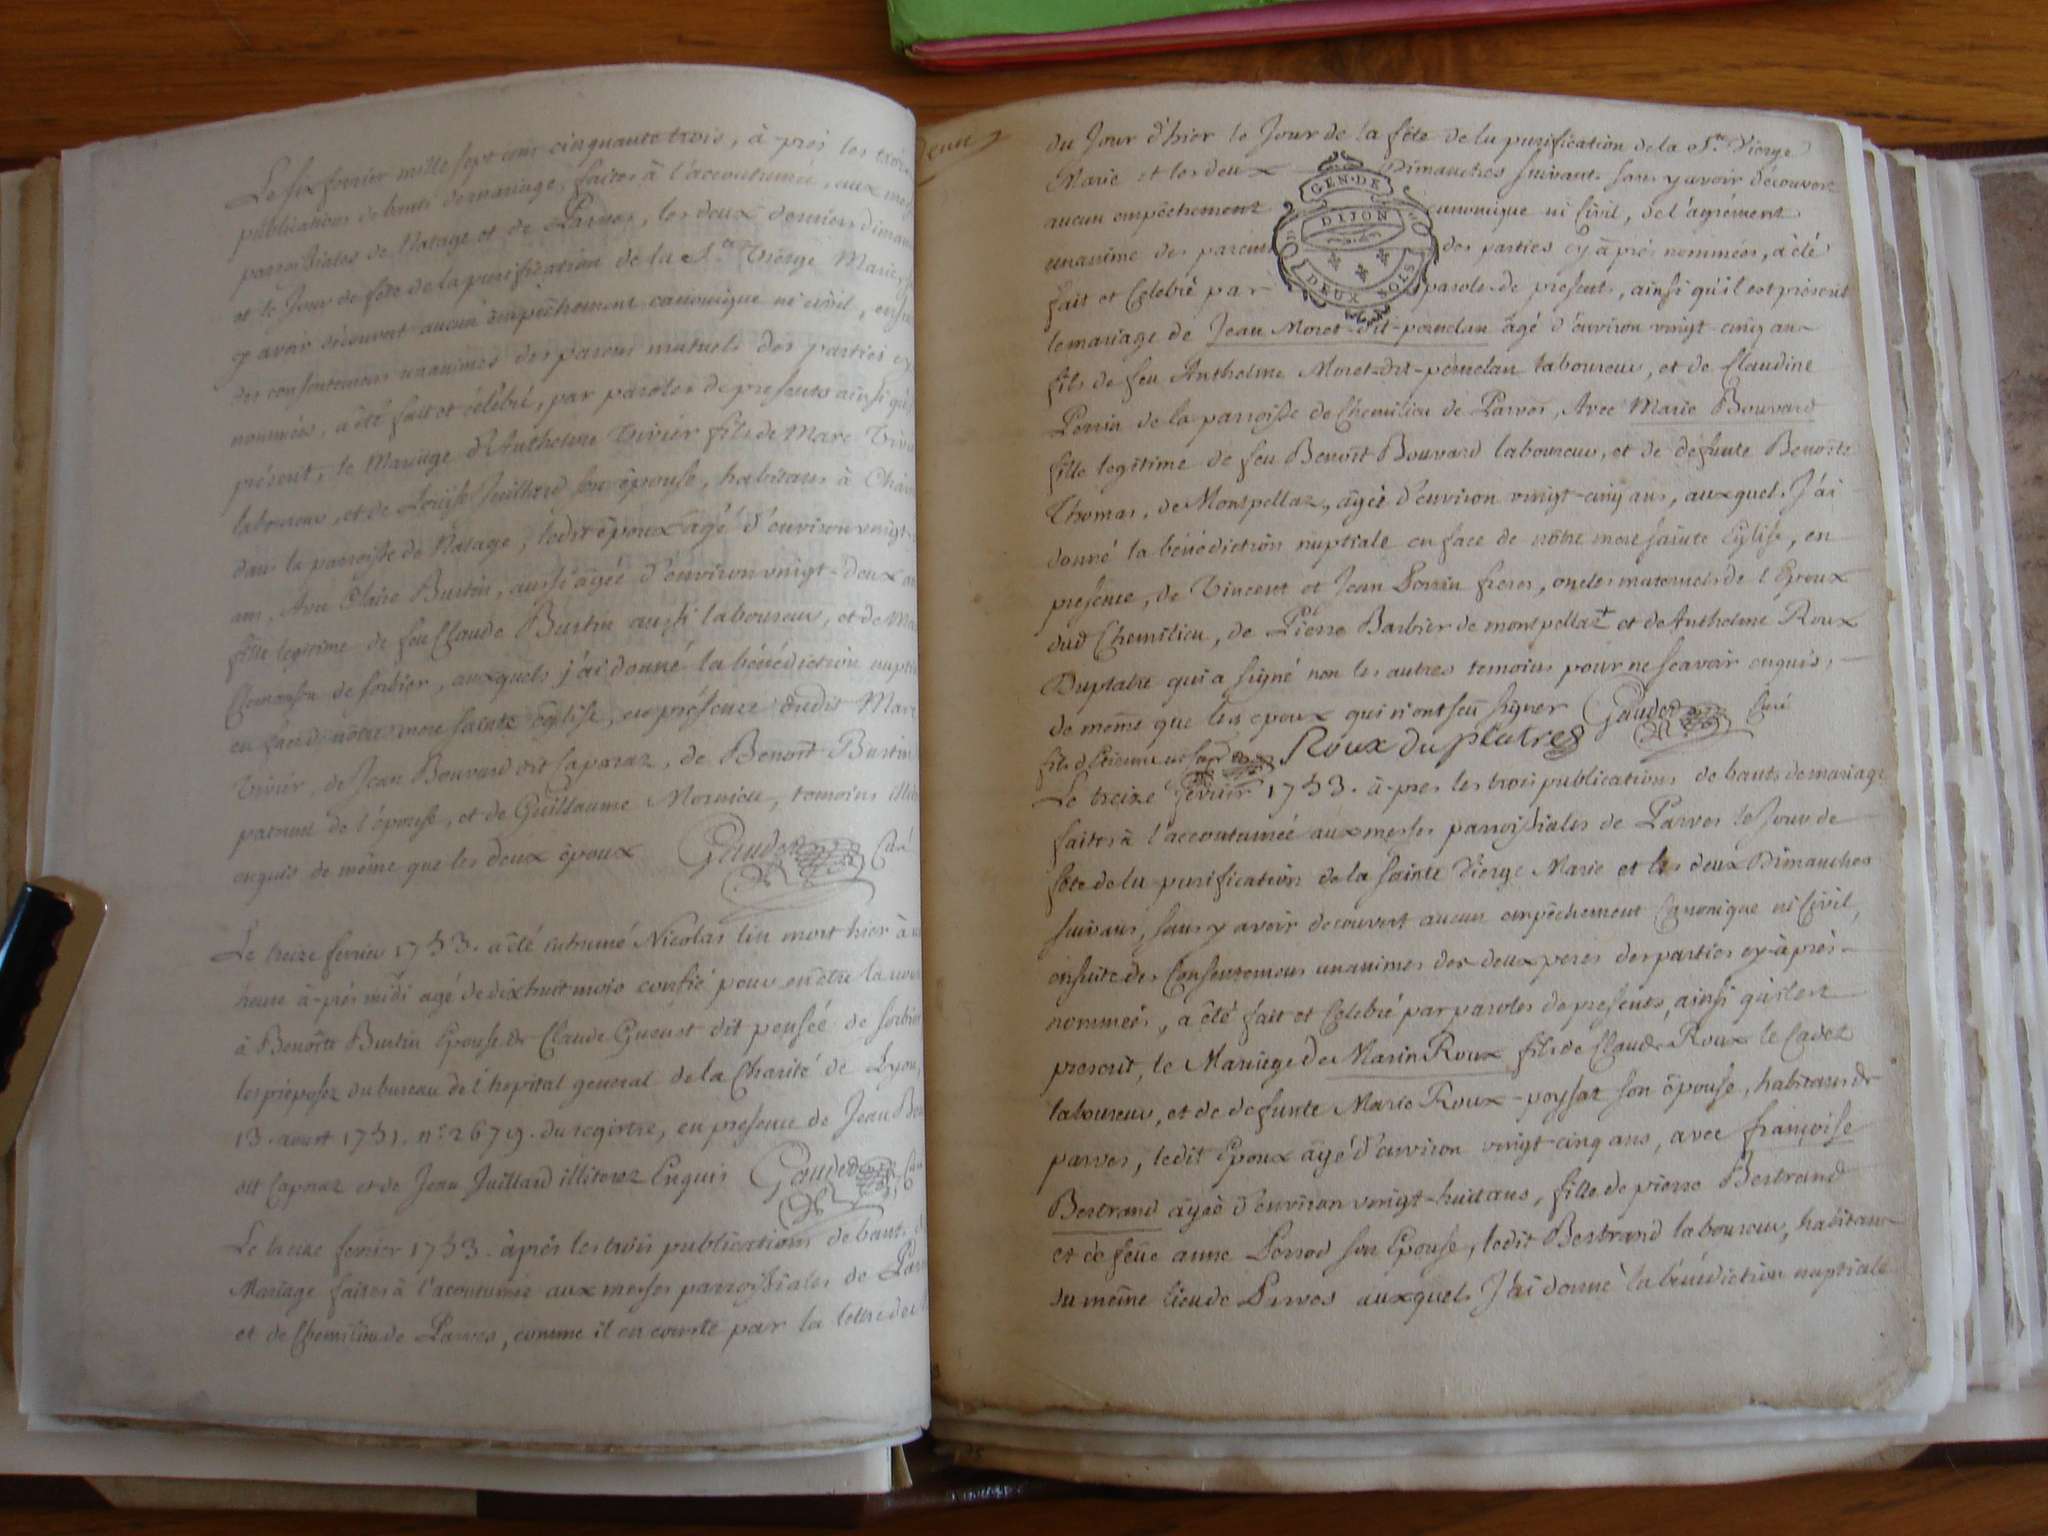 Le six fevrier mille sept cens cinquante trois, à-près les trois
publications de bants de mariage, faites à l'accoutumée, aux mes
parroissiales de Natage et de Parves, les deux derniers diman
et le Jour de fête de la purification de la Ste Vierge Marie,
y avoir découvert aucun empêchement canonique ni civil, ensu
des consentemens unanimes des parens mutuels des parties cy
nommées, a été fait et célébré, par paroles de presents ainsi qu'
présent, le Mariage d'Anthelme Vivier fils de Marc Vivi
laboureur, et de Louise Juillard son épouse, habitans à
dans la parroisse de Natage, ledit époux âgé d'environ vingt-
ans, Avec Claire Burtin, aussi âgée d'environ vingt-deux an
fille legitime de feu Claude Burtin aussi laboureur, et de
de sorbier, auxquels j'ai donné la bénédiction nupti
en face de nôtre mere sainte Eglise, en présence dudit Marc
Vivier, de Jean Bouvard dit Caporaz, de Benoît Burtin
paternel de l'épouse, et de Guillaume Mornieu, temoins illite
enquis de même que les deux époux Gaudet Curé
Le treize fevrier 1753. a été inhumé Nicolas lin mort hier à
heure à-près midi agé de dix huit mois confié pour en être la nour
à Benoîte Burtin Epouse de Claude Gueust dit pensée de sorbier
les préposez du bureau de l'hopital general de la Charité de Lyon,
13. aoust 1751. n° 2679. du registre, en presence de Jean Bou
dit Caporaz et de Jean Juillard illiterez Enquis Gaudet Cu
Le treize fevrier 1753. après les trois publications de bants d
Mariage faites à l'acoutumée aux messes parroissiales de Parv
et de Chemilieu de Parves, comme il en conste par la lettre de
du Jour d'hier le Jour de la fête de la purification de la Ste Vierge
Marie et les deux Dimanches suivants sans y avoir découvert
aucun empêchement canonique ni Civil, de l'agrément
unanime des parens des parties cy à prés nommées, a été
fait et Celebré par parole de presents, ainsi qu'il est présent
GEN. DE
DIJON
DEUX SOLS
le mariage de Jean Moret-dit-pernelan âgé d'environ vingt-cinq ans
fils de feu Anthelme Moret-dit-pernelan laboureur, et de Claudine
Perrin de la parroisse de Chemilieu de Parves, Avec Marie Bouvard
fille legitime de feu Benoît Bouvard laboureur, et de défunte Benoîte
Thomas, de Montpellaz, âgée d'environ vingt-cinq ans, auxquels J'ai
donné la bénédiction nuptiale en face de nôtre mere sainte Eglise, en
presence, de Vincent et Jean Perrin freres, oncles maternels de l'Epoux
dud Chemilieu, de Pierre Barbier de montpellaz + et de Anthelme Roux
Duplatre qui a signé non les autres temoins pour ne sçavoir enquis,
de même que les epoux qui n'ont sçu signer Gaudet Curé
+ fils d'Etienne Roux du platre
Le treize fevrier 1753. à-pres les trois publications de bants de mariage
faites à l'accoutumée aux messes parroissiales de Parves le Jour de
fête de la purification de la sainte Vierge Marie et les deux Dimanches
suivans, sans y avoir decouvert aucun empêchement Canonique ni Civil,
ensuite des Consentemens unanimes des deux peres des parties cy-à-près-
nommées, a été fait et Celebré par paroles de presents, ainsi qu'il est
present, le Mariage de Marin Roux fils de Claude Roux le Cadet
laboureur, et de defunte Marie Roux-poysat son épouse, habitans de
parves, ledit Epoux âgé d'environ vingt cinq ans, avec françoise
Bertrand âgée d'environ vingt-huit ans, fille de pierre Bertrand
et de feüe anne Perrod son Epouse, ledit Bertrand laboureur, habitans
du même lieu de Parves auxquels J'ai donné la bénédiction nuptiale